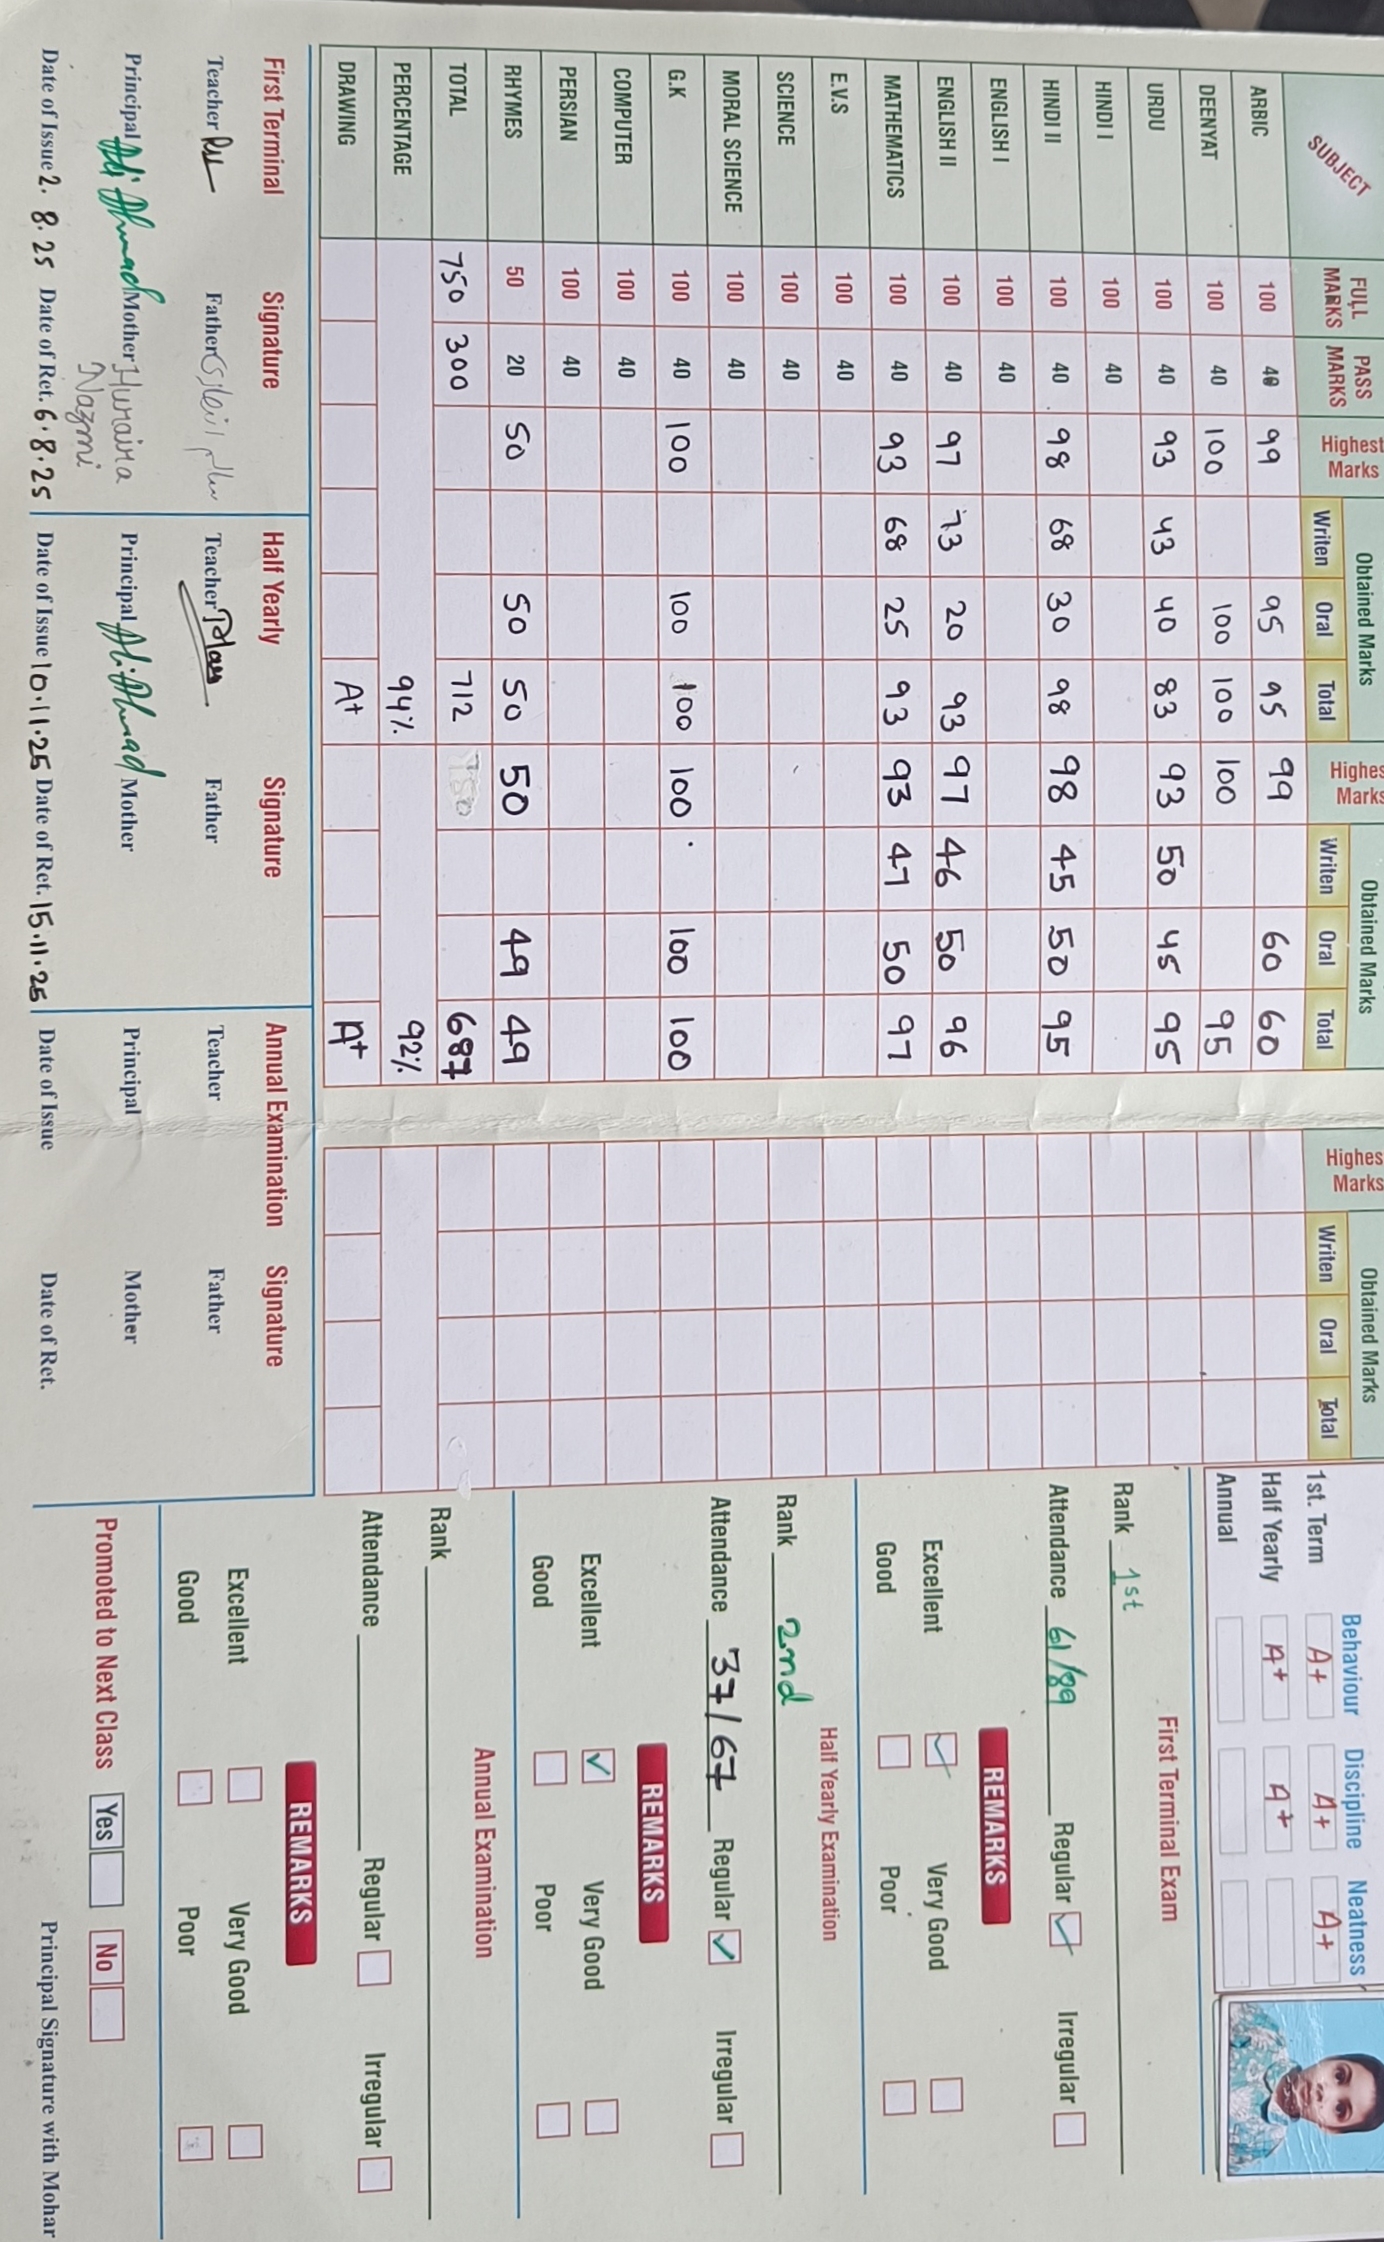 SUBJECT FULL MARKS PASS MARKS Highest Marks Obtained Marks Highes Marks Obtained Marks Highes Marks Obtained Marks
Writen Oral Total Writen Oral Total Writen Oral Total
ARBIC 100 40 99 95 95 99 60 60
DEENYAT 100 40 100 100 100 100 95
URDU 100 40 93 43 40 83 93 50 45 95
HINDI I 100 40
HINDI II 100 40 98 68 30 98 98 45 50 95
ENGLISH I 100 40
ENGLISH II 100 40 97 73 20 93 97 46 50 96
MATHEMATICS 100 40 93 68 25 93 93 47 50 97
E.V.S 100 40
SCIENCE 100 40
MORAL SCIENCE 100 40
G.K 100 40 100 100 100 100 100 100
COMPUTER 100 40
PERSIAN 100 40
RHYMES 50 20 50 50 50 50 49 49
TOTAL 750 300 712 687
PERCENTAGE 94% 92%
DRAWING A+ A+
First Terminal Signature Half Yearly Signature Annual Examination Signature
Teacher Father Teacher Father Teacher Father
Principal Ali Ahmad Mother Huraira Principal Ali Ahmad Mother Principal Mother
Nazmi
Date of Issue 2.8.25 Date of Ret. 6.8.25 Date of Issue 10.11.25 Date of Ret. 15.11.25 Date of Issue Date of Ret.
Behaviour Discipline Neatness
1st. Term A+ A+ A+
Half Yearly A+ A+
Annual
First Terminal Exam
Rank 1st
Attendance 61/89 Regular Irregular
REMARKS
Excellent Very Good
Good Poor
Half Yearly Examination
Rank 2nd
Attendance 37/67 Regular Irregular
REMARKS
Excellent Very Good
Good Poor
Annual Examination
Rank
Attendance Regular Irregular
REMARKS
Excellent Very Good
Good Poor
Promoted to Next Class Yes No
Principal Signature with Mohar